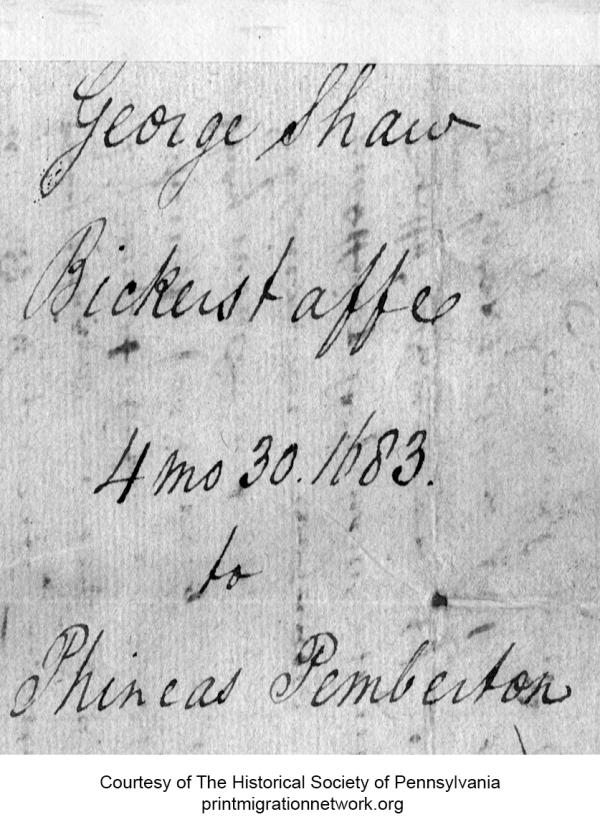 George Shaw
Bickerstaffe
4 mo 30. 1683.
to
Phineas Pemberton
Courtesy of The Historical Society of Pennsylvania
printmigrationnetwork.org